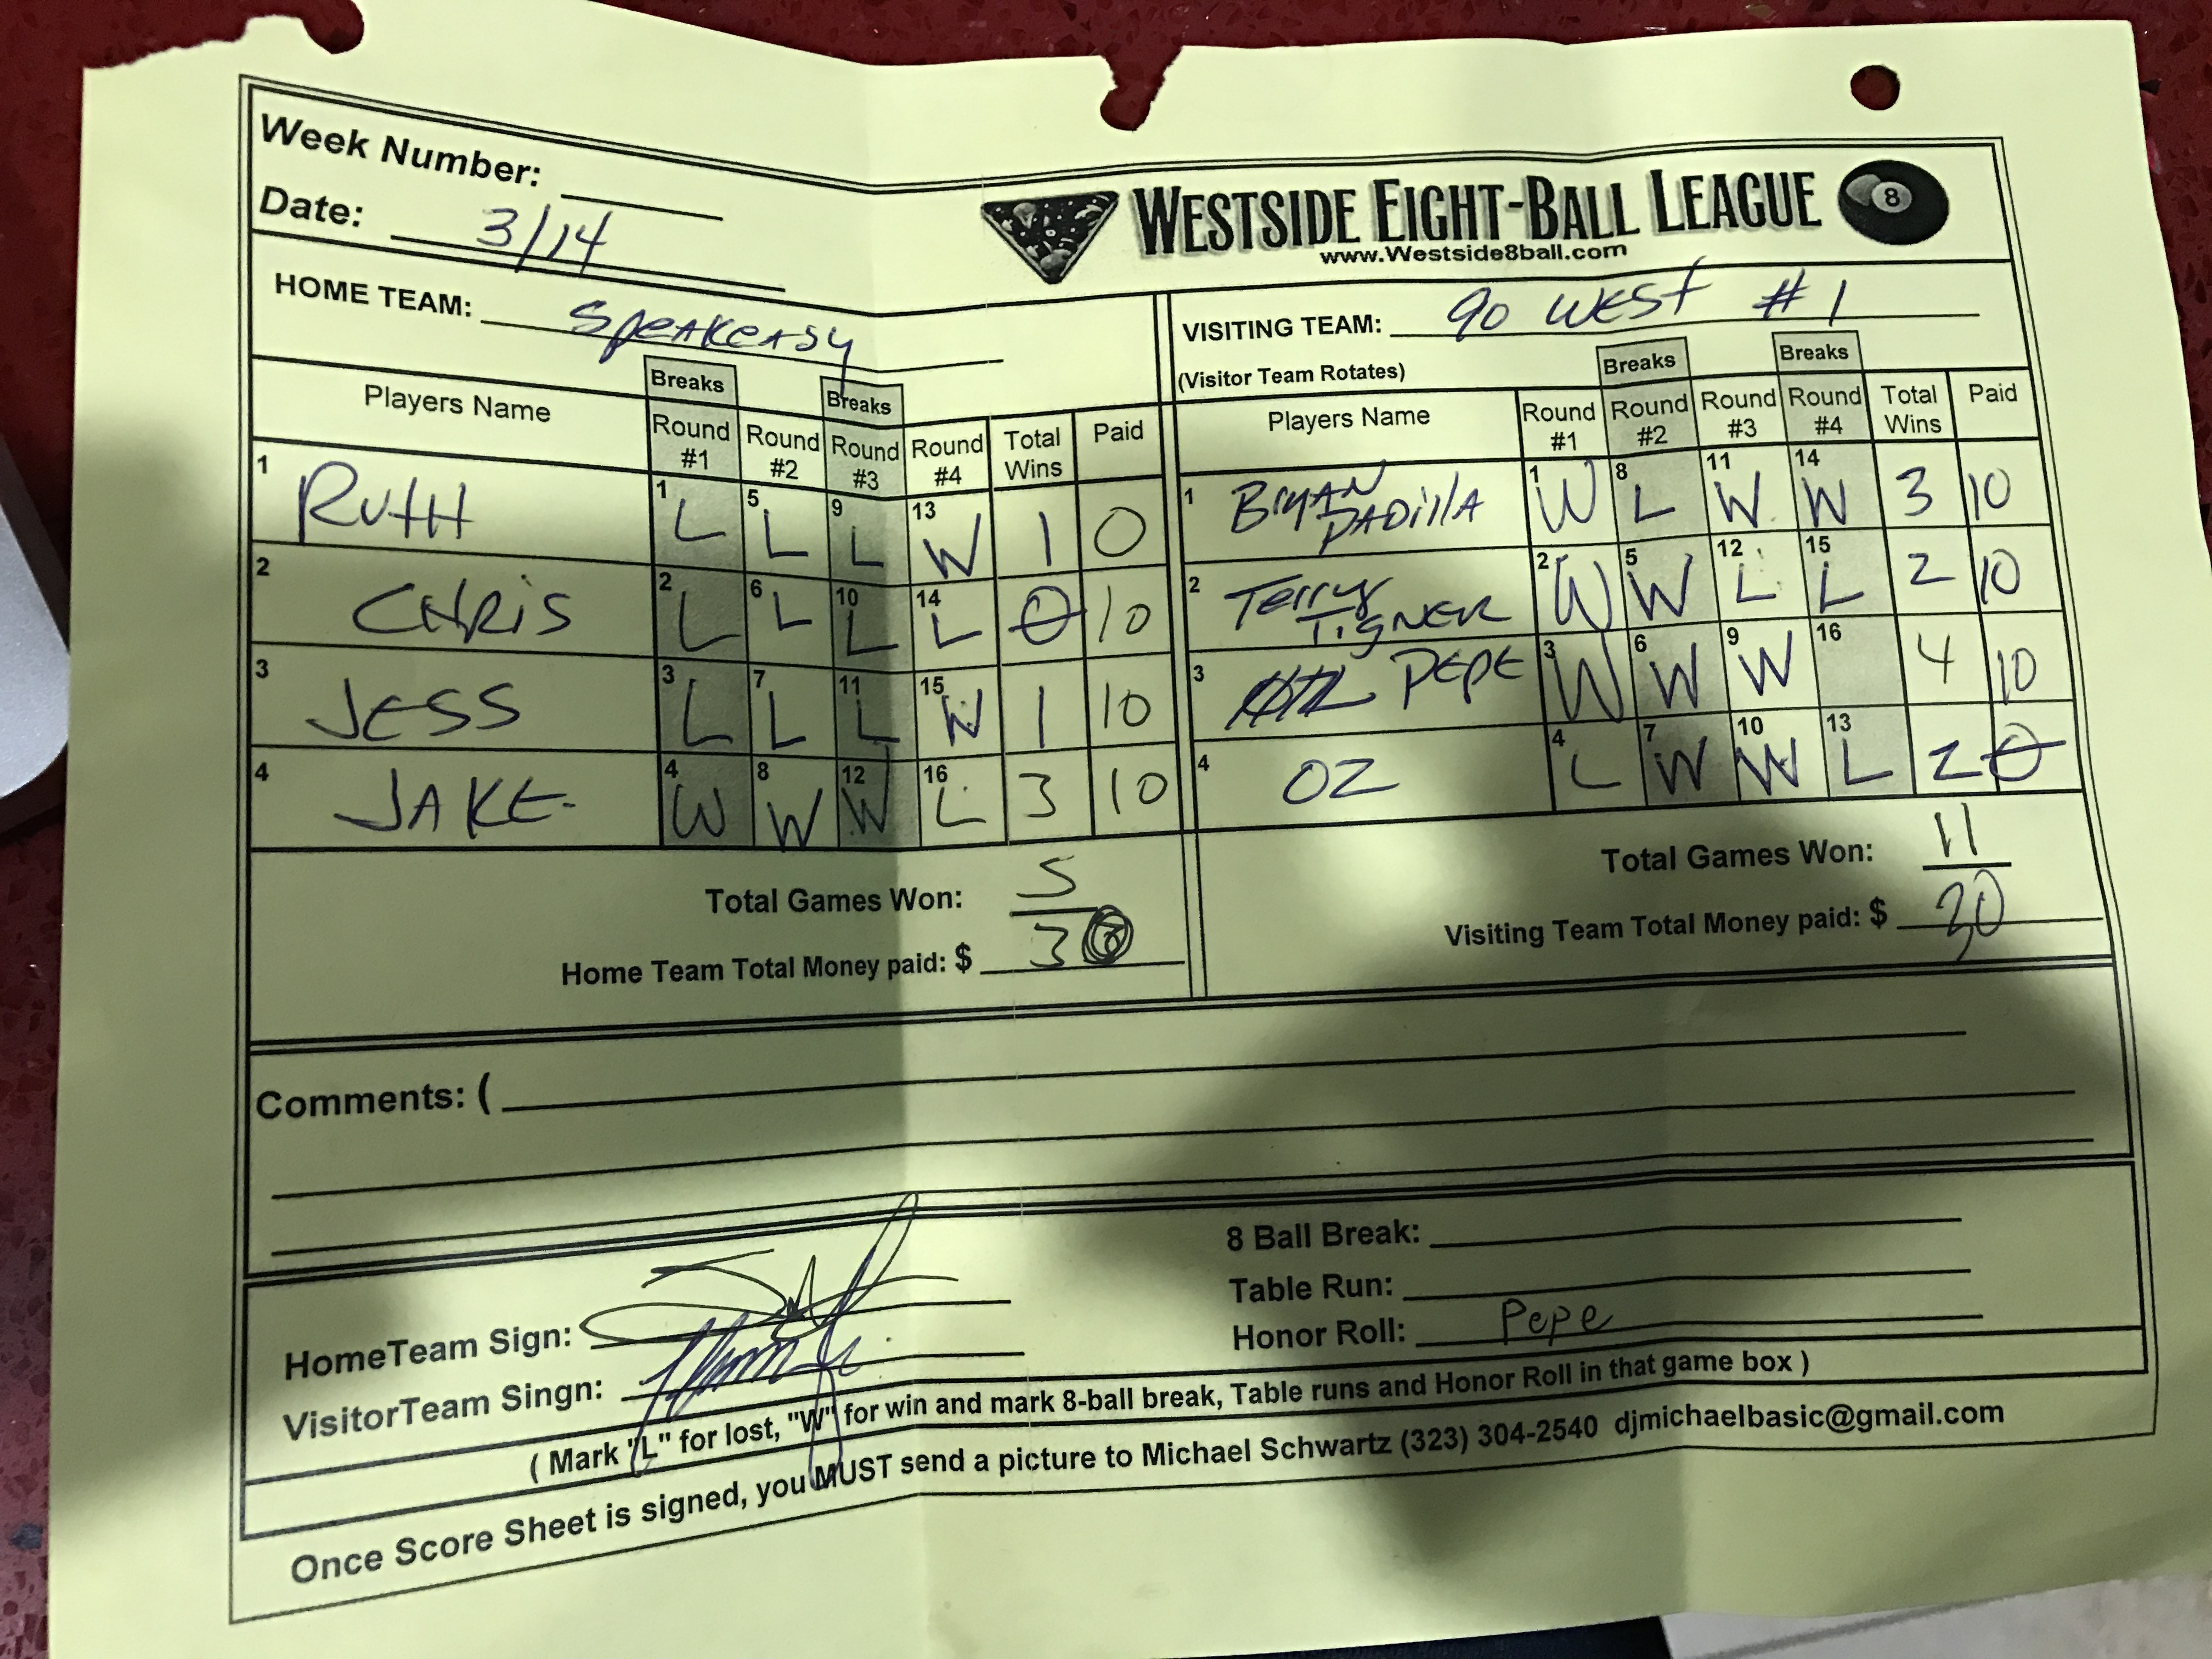 Week Number:
Date: 3/14
WESTSIDE EIGHT-BALL LEAGUE 8
www.Westside8ball.com
HOME TEAM: SPEAKEASY
Breaks Breaks
Players Name Round #1 Round #2 Round #3 Round #4 Total Wins Paid
1 RUTH 1 L 5 L 9 L 13 W 1 0
2 CHRIS 2 L 6 L 10 L 14 L 0 10
3 JESS 3 L 7 L 11 L 15 W 1 10
4 JAKE 4 W 8 W 12 W 16 L 3 10
Total Games Won: 5
Home Team Total Money paid: $ 30
VISITING TEAM: 90 WEST #1
(Visitor Team Rotates) Breaks Breaks
Players Name Round #1 Round #2 Round #3 Round #4 Total Wins Paid
1 BRYAN PADILLA 1 W 8 L 11 W 14 W 3 10
2 Terry TIGNER 2 W 5 W 12 L 15 L 2 10
3 PEPE 3 W 6 W 9 W 16 4 10
4 OZ 4 L 7 W 10 W 13 L 2 0
Total Games Won: 11
Visiting Team Total Money paid: $ 30
Comments: (
HomeTeam Sign:
VisitorTeam Singn:
8 Ball Break:
Table Run:
Honor Roll: Pepe
( Mark "L" for lost, "W" for win and mark 8-ball break, Table runs and Honor Roll in that game box )
Once Score Sheet is signed, you MUST send a picture to Michael Schwartz (323) 304-2540 djmichaelbasic@gmail.com